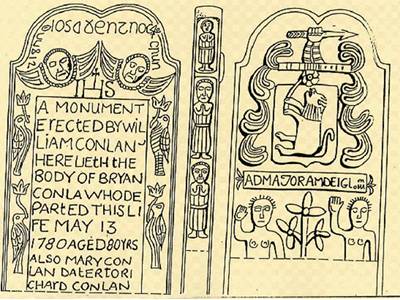 IHS
A MONUMENT
ERECTED BY WIL
LIAM CONLAN
HERE LIETH THE
BODY OF BRYAN
CONLA WHO DE
PARTED THIS LI
FE MAY 13
1780 AGED 80 YRS
ALSO MARY CON
LAN DATER TO RI
CHARD CONLAN
ADMAJORAMDEIGLOM